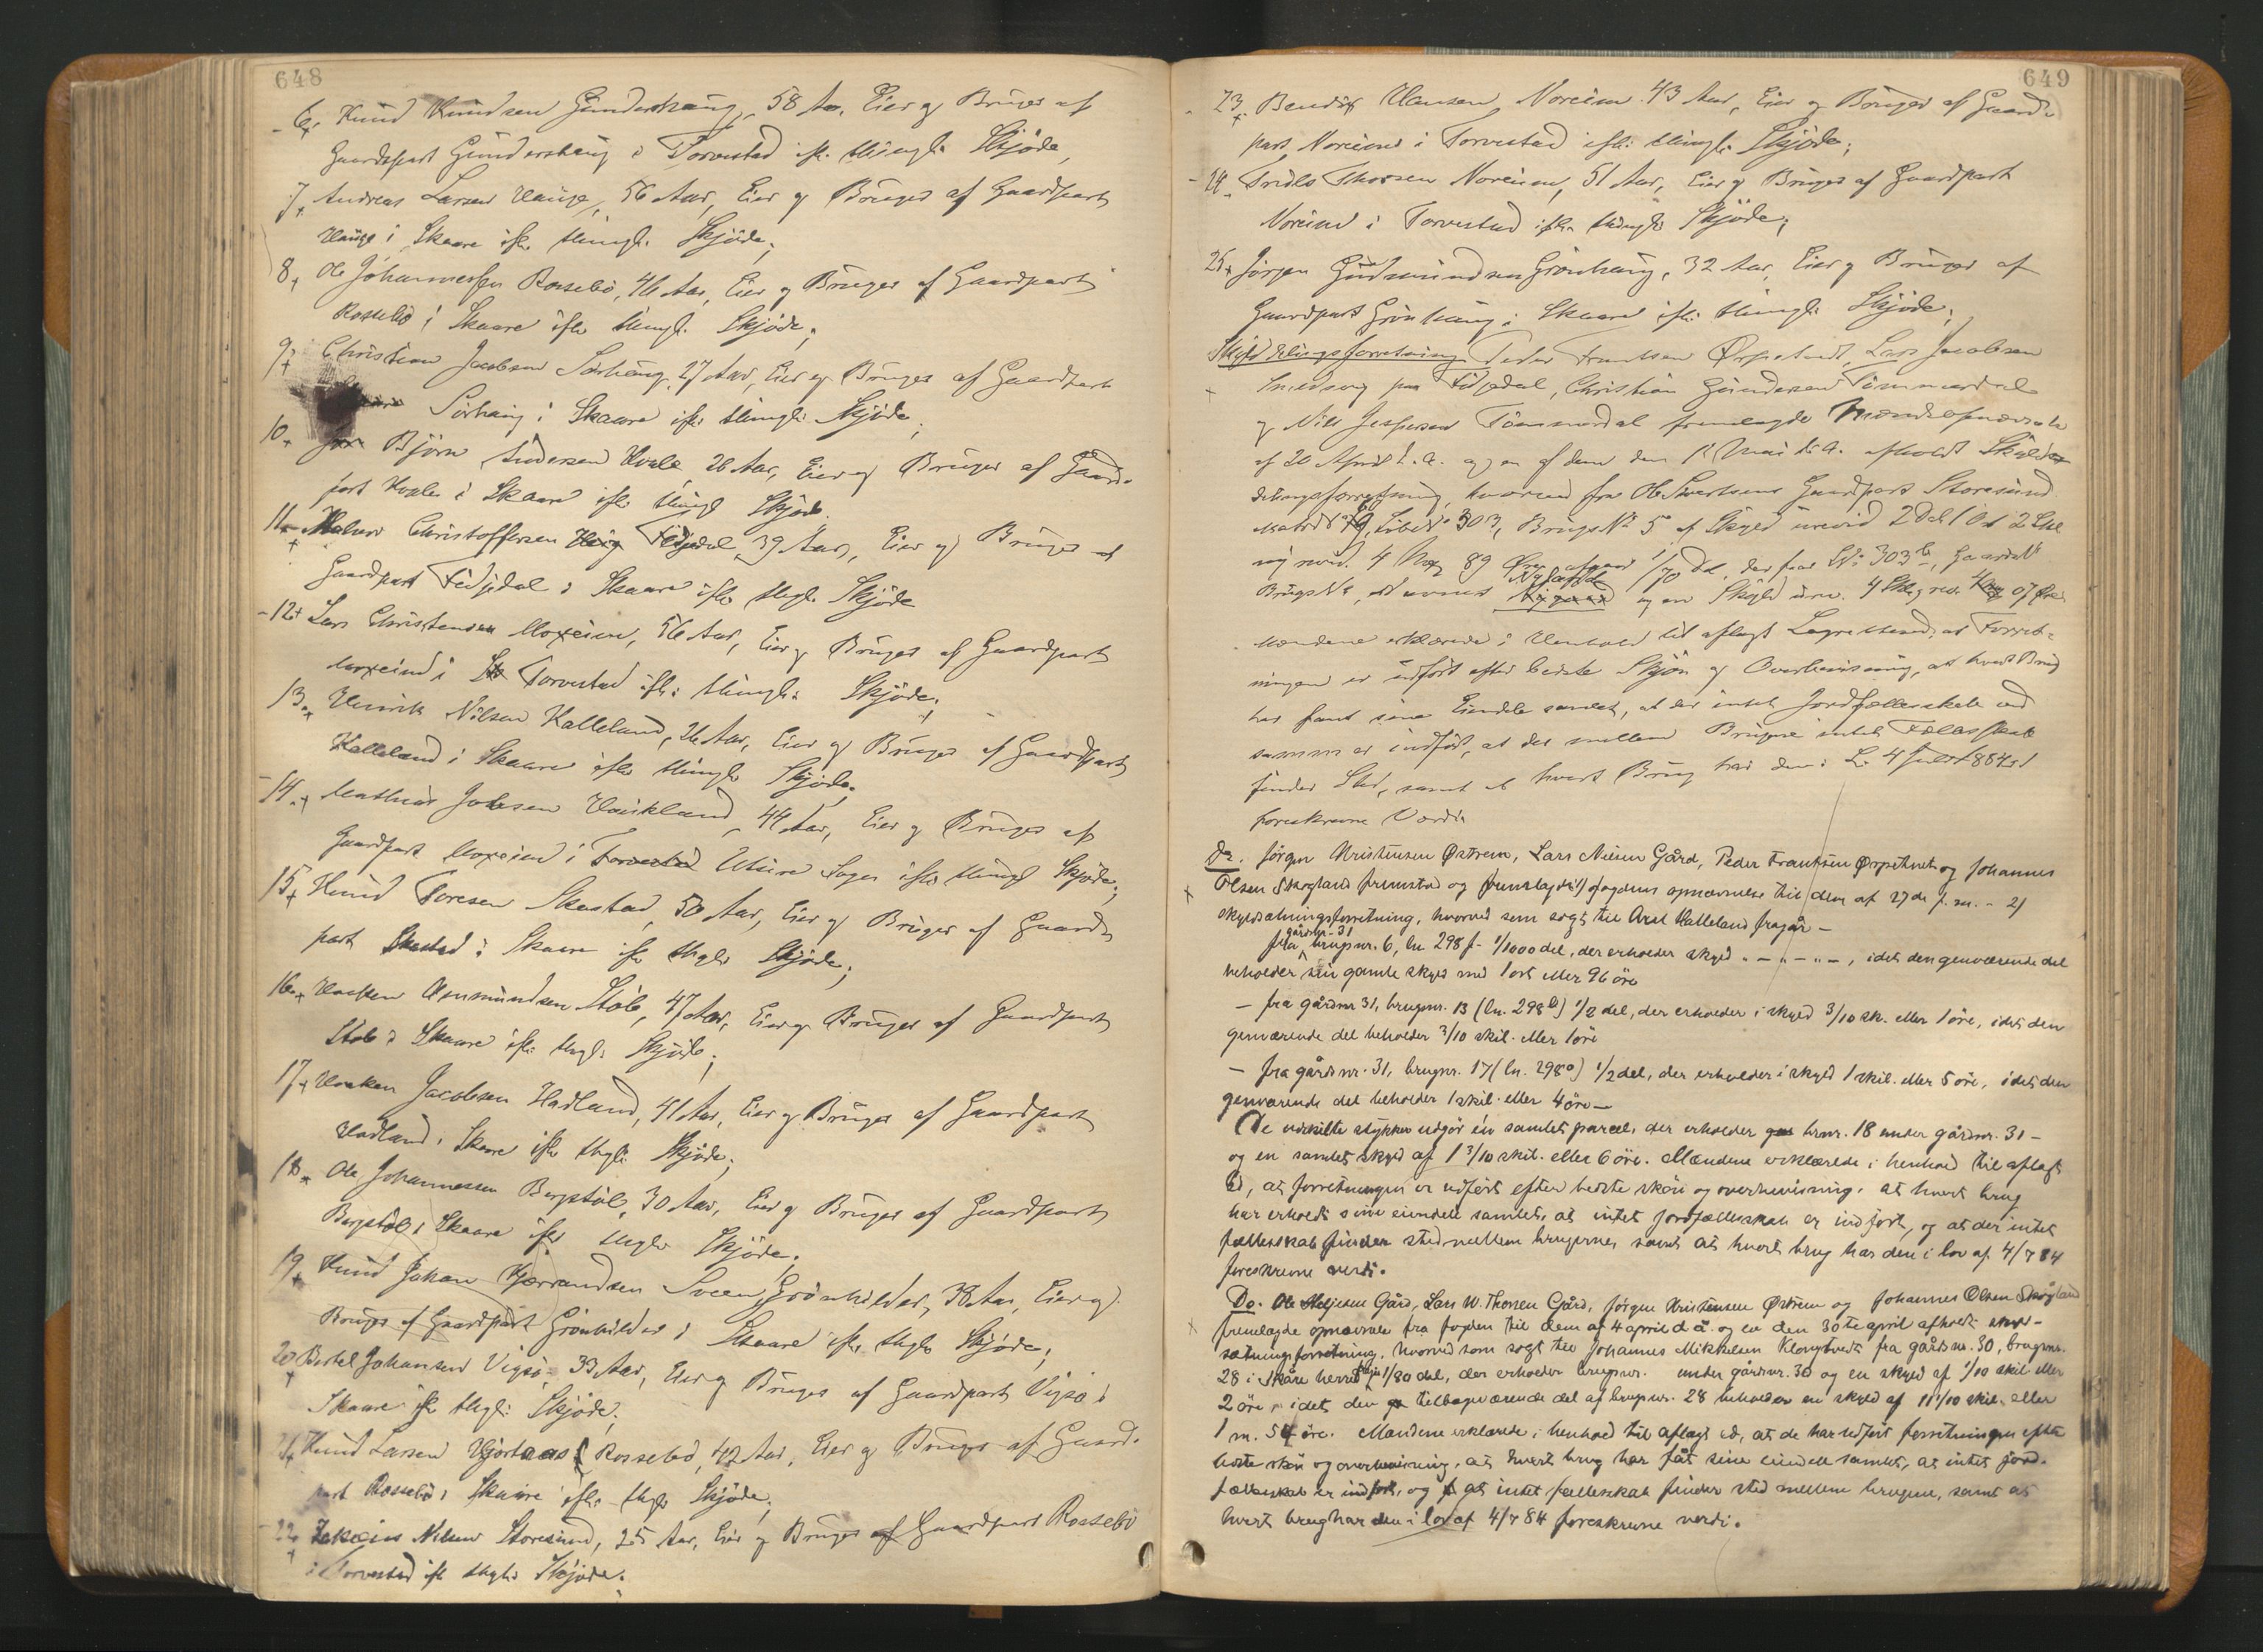 648
6. Knud Knudsen Gundershaug, 58 Aar, Eier og Bruger af
Gaardpart Gundershaug i Torvestad ifl. thingl. Skjøde,
7. Andreas Larsen Hauge, 56 Aar, Eier og Bruger af Gaardpart
Hauge i Skaare ifl. thingl. Skjøde,
8. Ole Johannessen Rossebø, 46 Aar, Eier og Bruger af Gaardpart
Rossebø i Skaare ifl. thingl. Skjøde,
9. Christian Jacobsen Sørhaug, 27 Aar, Eier og Bruger af Gaardpart
Sørhaug i Skaare ifl. thingl. Skjøde,
10. Bjørn Andersen Hvale, 26 Aar, Eier og Bruger af Gaard-
part Hvale i Skaare ifl. thingl. Skjøde.
11. Christoffersen Fedjedal, 39 Aar, Eier og Bruger af
Gaardpart Fedjedal i Skaare ifl. thgl. Skjøde
12. Lars Christensen Moxeim, 56 Aar, Eier og Bruger af Gaardpart
Moxeim i Torvestad ifl. thingl. Skjøde,
13. Henrik Nilsen Kalleland, 26 Aar, Eier og Bruger af Gaardpart
Kalleland i Skaare ifl. thingl. Skjøde,
14. Mathias Jobsen Haukland, 44 Aar, Eier og Bruger af
Gaardpart Moxeim i Torvestad Utsire Sogn ifl. thingl. Skjøde,
15. Knud Toresen Skastad, 50 Aar, Eier og Bruger af Gaard-
part Skastad i Skaare ifl. thgl. Skjøde;
16. Haaken Asmundsen Støle, 47 Aar, Eier og Bruger af Gaardpart
Støle i Skaare ifl. thgl. Skjøde;
17. Haaken Jacobsen Hadland, 41 Aar, Eier og Bruger af Gaardpart
Hadland i Skaare ifl. thgl. Skjøde;
18. Ole Johannessen Bergstøl, 30 Aar, Eier og Bruger af Gaardpart
Bergstøl i Skaare ifl. thgl. Skjøde;
19. Knud Johan Sveen, Grønhilder, 38 Aar, Eier og
Bruger af Gaardpart Grønhilder i Skaare ifl. thgl. Skjøde;
20. Bertel Johansen Vigsø, 33 Aar, Eier og Bruger af Gaardpart Vigsø i
Skaare ifl. thgl. Skjøde,
21. Knud Larsen Hjortaas Rossebø, 42 Aar, Eier og Bruger af Gaard-
part Rossebø i Skaare ifl. thgl. Skjøde;
22. Nilsen Storesund, 25 Aar, Eier og Bruger af Gaardpart Rossebø
i Torvestad ifl. thgl. Skjøde.
649
23. Bendix Hansen, Noreim 43 Aar, Eier og Bruger af Gaard-
part Noreim i Torvestad ifl. thingl. Skjøde;
24. Thorsen Noreim, 51 Aar, Eier og Bruger af Gaardpart
Noreim i Torvestad ifl. thingl. Skjøde;
25. Jørgen Gudmundsen Grønhaug, 32 Aar, Eier og Bruger af
Gaardpart Grønhaug i Skaare ifl. thingl. Skjøde;
Skylddelingsforretning. Peder Frantsen Ørpetvedt, Lars Jacobsen
paa Fedjedal, Christian Gundersen Tømmerdal
og Nils Jespersen Tømmerdal fremlagde Mandsopnævnelse
af 20 April d. A. og en af dem den 1ste Mai d. A. afholdt Skyld-
delingsforretning, hvorved fra Ole Sivertsens Gaardpart Storesund
Matr. Løbe No 303, Brugs No 5 af Skyld urevid 2 Dal. 1 Ort 2 Skl.
og revid. 4 Mrk. 89 Øre afgaar 1/70 Del, der faar LNo 303 b, Gaards No
Brugs No, og en Skyld urev. 4 Skl. og rev. 07 Øre.
Mændene erklærede i Henhold til aflagt Lagretteed, at Forret-
ningen er udført efter bedste Skjøn og Overbevisning, at hvert Brug
har faaet sine Eiendele samlet, at der intet Jordfællesskab ved
samme er indført, at der mellem Brugene intet Fællesskab
finder Sted, samt at hvert Brug har den i L. 4 Juli 1884
foreskrevne Værdi.
Do. Jørgen Kristensen Østrem, Lars Nilsen Gård, Peder Frantsen Ørpetvet og Johannes
Olsen Skogland fremstod og fremlagde 1) fogdens opnævnelse til dem af 27de f. m. - 2)
skyldsætningsforretning, hvorved som solgt til Arnt Kalleland fragår -
fra gårdsnr. 31 brugsnr. 6, ln 298 f - 1/1000 del, der erholder skyld " - " - " -, idet den genværende del
beholder sin gamle skyld med 1 ort eller 96 öre
- fra gårdsnr 31, brugsnr. 13 (ln. 298 l) 1/2 del, der erholder i skyld 3/10 sk. eller 1 öre, idet den
genværende del beholder 3/10 skil. eller 1 öre
- fra gårdsnr. 31, brugsnr. 17 (ln. 298 o) 1/2 del, der erholder i skyld 1 skil. eller 5 öre, idet den
genværende del beholder 1 skil. eller 4 öre -
De udskilte stykker udgör én samlet parcel, der erholder brnr. 18 under gårdsnr. 31 -
og en samlet skyld af 1 3/10 skil. eller 6 öre. Mændene erklærede i henhold til aflagt
ed, at forretningen er udført efter bedste skön og overbevisning, at hvert brug
har erholdt sine eiendele samlet, at intet jordfællesskab er indført, og at der intet
fællesskab finder sted mellem brugerne, samt at hvert brug har den i lov af 4/7 84
foreskrevne verdi.
Do. Ole Gård, Lars W. Thorsen Gård, Jörgen Kristensen Østrem og Johannes Olsen Skogland
fremlagde opnævnelse fra fogden til dem af 4 april d å og en den 30te april afholdt skyld-
sætningsforretning, hvorved som solgt til Johannes Mikkelsen Klongtvedt fra gårdsnr. 30, brugsnr.
28 i Skåre herred 1/80 del, der erholder brugsnr. under gårdsnr. 30 og en skyld af 1/10 skil eller
2 öre, idet den tilbageværende del af brugsnr. 28 beholder en skyld af 11 1/10 skil. eller
1 m. 54 öre. Mændene erklærede i henhold til aflagt ed, at de har udført forretningen efter
bedste skön og overbevisning, at hvert brug har fåt sine eiendele samlet, at intet jord-
fællesskab er indført, og at intet fællesskab finder sted mellem brugene, samt at
hvert brug har den i lov af 4/7 84 foreskrevne verdi.